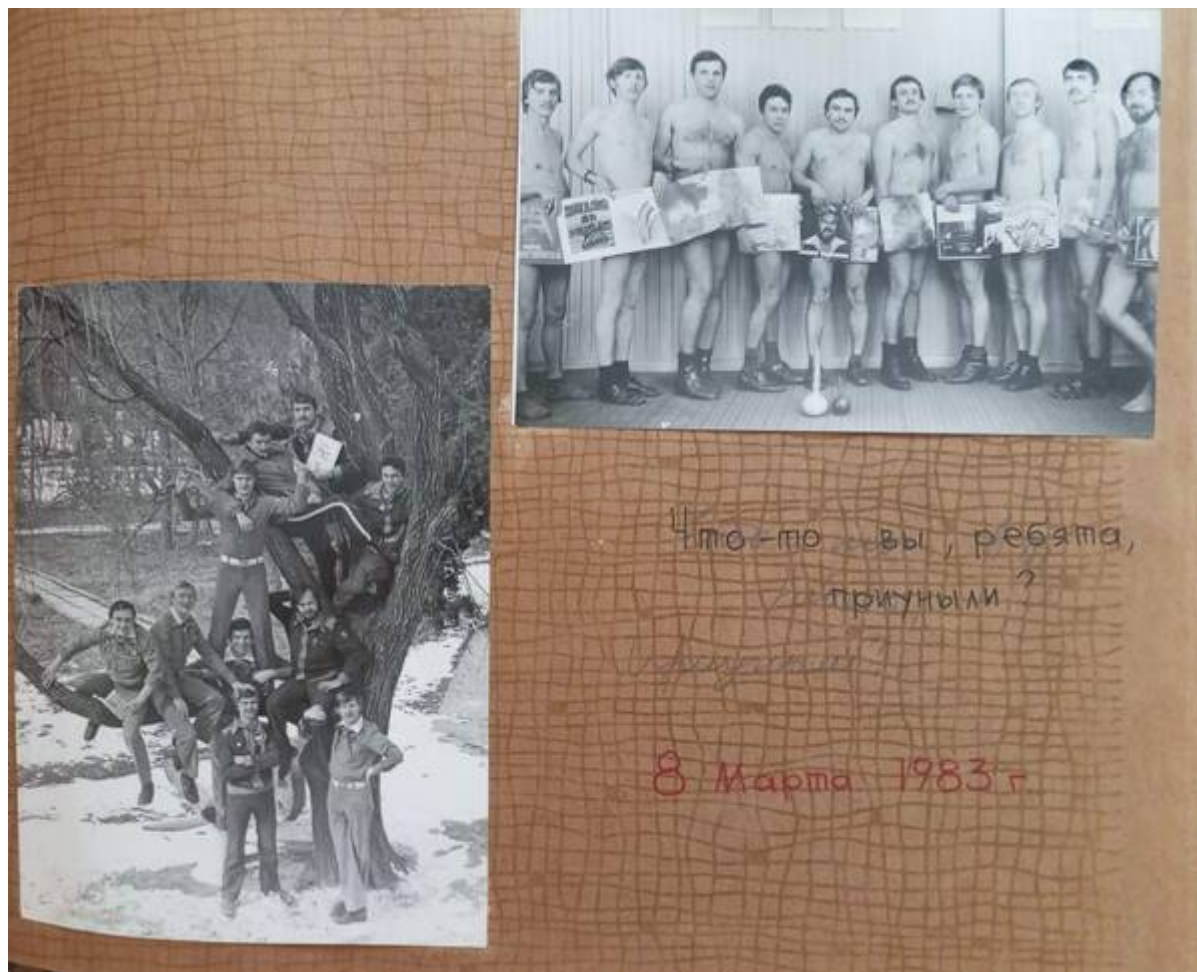 Что-то вы, ребята,
приуныли?
8 Марта 1983 г